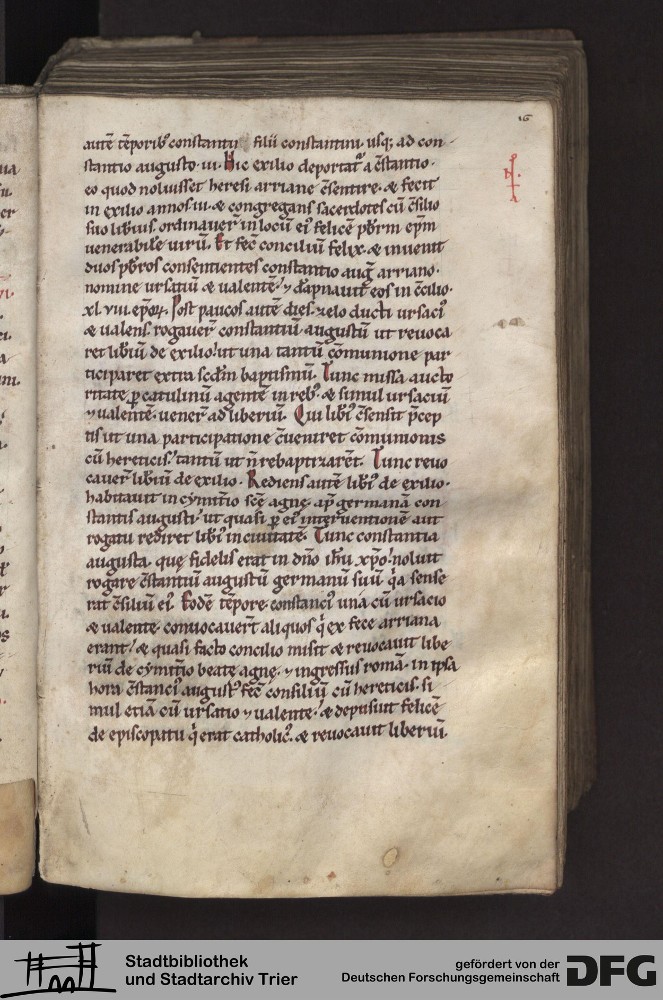 16
autē tēporibꝫ constantii filii constantini usqꝫ ad con-
stantio augusto .iii. Hic exilio deportatꝰ a cstantio.
eo quod noluisset heresi arriane csentire. & fecit
in exilio annos .iii. & congregans sacerdotes cū csilio
suo liberius. ordinauer̄ in locū eiꝰ felicē pb̄rm ep̄m
uenerabile uirū. Et fec̄ conciliū felix. & inuenit
duos pb̄ros consentientes constantio auḡ arriano.
nomine ursatiū & ualentē. ⁊ dāpnauit eos in ccilio.
xl.viii. ep̄oꝝ. Post paucos autē dies. zelo ducti ursaciꝰ
& ualens. rogauer̄ constantiū augustū ut reuoca
ret lib̄iū de exilio! ut una tantū cōmunione par
ticiparet extra scd̄m baptismū. Tunc missa aucto
ritate ꝑ catulinū agentē in rebꝰ. & simul ursaciū
⁊ ualentē. uener̄ ad liberiū. Qui lib̄iꝰ csensit p̄cep
tis ut una participatione cueniret cōmunionis
cū hereticis! tantū ut n̄ rebaptizarēt. Tunc reuo
cauer̄ lib̄iū de exilio. Rediens autē lib̄iꝰ de exilio.
habitauit in cymit̄io sc̄e agne. ap̄ germanā con
stantis augusti! ut quasi ꝑ eiꝰ interuentionē aut
rogatu rediret lib̄iꝰ in ciuitatē. Tunc constantia
augusta. quę fidelis erat in dn̄o ih̄u xp̄o! noluit
rogare cstantiū augustū germanū suū qa sense
rat csiliū eiꝰ. Eodē tēpore. constanciꝰ una cū ursacio
& ualente. conuocauer̄t aliquos q ex fece arriana
erant! & quasi facto concilio misit & reuocauit libe
riū de cymit̄io beate agnę. ⁊ ingressus romā. in ipsa
hora cstanciꝰ augustꝰ fec̄ consiliū cū hereticis. si
mul etiā cū ursatio ⁊ ualente! & deposuit felicē
de episcopatu q erat catholicꝰ. & reuocauit liberiū.
Stadtbibliothek
und Stadtarchiv Trier
gefördert von der
Deutschen Forschungsgemeinschaft
DFG